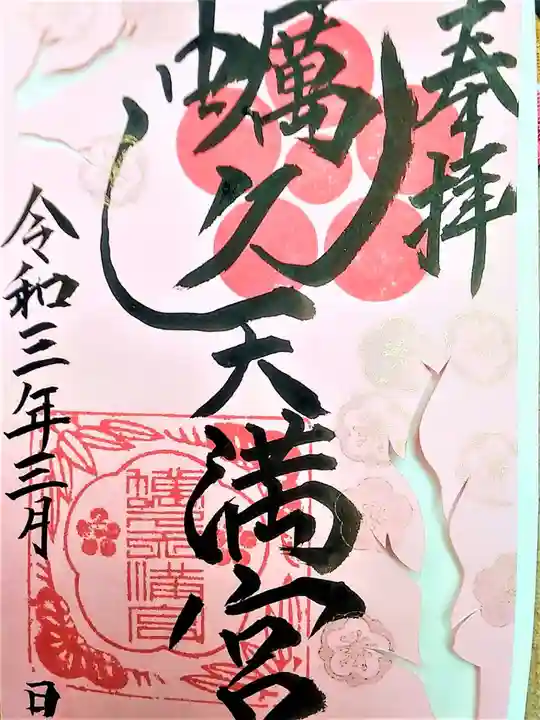 奉拝
蠣久天満宮
令和三年三月 日
蠣久天満宮